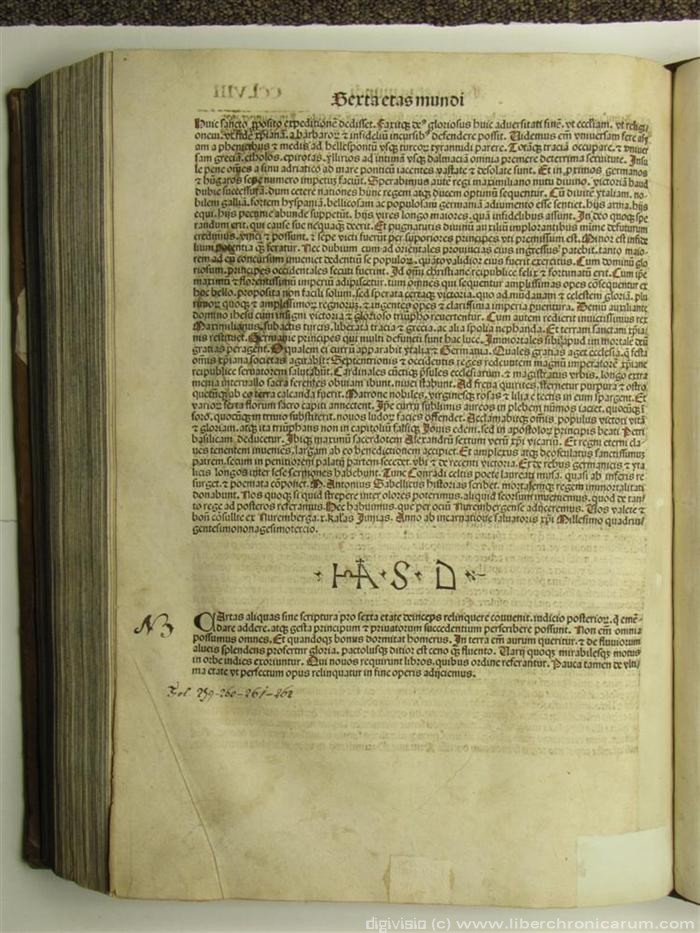 Sexta etas mundi
Huic sancto ꝓposito expeditionē dedisset. Faxitqꝫ deꝰ gloriosus huic adversitati finē. vt eccliam. vt religi
onem. vt fidē xp̄ianā. a barbaroꝝ ⁊ infideliū incursibꝰ defendere possit. Uidemus em̄ vniuersam fere asi
am a phenicibus ⁊ medis ad hellespontū vsqꝫ turcoꝝ tyrannidi parere. Totāqꝫ tracia occupare. ⁊ vniuer
sam greciā. etholos. epirotas. yllirios ad intimā vsqꝫ dalmaciā omnia premere deterrima seruitute. Insu
le pene om̄es a sinu adriatico ad mare ponticū iacentes vastate ⁊ desolate sunt. Et in ꝓximos germanos
⁊ hūgaros sepe numero impetus faciūt. Sperabimus autē regi maximiliano nutu diuino. victoriā haud
dubie successuram. dum cetere nationes hunc regem atqꝫ ducem optimū sequentur. Cū diuite ytaliam. no
bilem galliā. fortem hyspaniā. bellicosam ac populosam germaniā adiumento esse sentiet. hijs arma. hijs
equi. hijs pecunie abunde suppetūt. hijs vires longo maiores. quā infidelibus assunt. In deo quoqꝫ spe
randum erit. qui cause sue nequaqꝫ deerit. Et pugnaturis diuinū auxiliū implorantibus minime defuturum
credimus. vinci ⁊ possunt. ⁊ sepe victi fuerūt per superiores principes. vt premissum est. Minor est infide
lium potentia qꝫ feratur. Nec dubium cum ad orientales prouincias eius ingressus patebit. tanto maio
rem ad eū concursum inueniet dedentiū se populoꝝ. quāto validior eius fuerit exercitus. Cum dominū glo
riosum. principes occidentales secuti fuerint. Id om̄i christiane reipublice felix ⁊ fortunatū erit. Cum ip̄e
maximū ⁊ florentissimū imperiū adipiscetur. tum omnes qui sequentur amplissimas opes cōsequentur ex
hoc bello. proposita non facili solum. sed sperata certaqꝫ victoria. quo ad nūdanam ⁊ celestem gloriā. plu
rimoꝝ quoqꝫ ⁊ amplissimoꝝ regnoruꝫ. ⁊ ingentes opes ⁊ clarissima imperia puentura. Demū auxiliante
domino ihesu cum insigni victoria ⁊ glorioso triūpho reuertentur. Cum autem redierit inuictissimus rex
Maximilianus. subactis turcis. liberata tracia ⁊ grecia. ac alia spolia nephanda. Et terram sanctam xp̄ia
nis restituet. Germanie principes qui multi defuncti sunt hac luce. Immortales sibi apud immortale deū
gratias peragent. O qualem ei currū apparabit ytalia ⁊ Germania. Quales gratias aget ecclesia. q̄ festa
om̄is xp̄iana societas agitabit ⁊ Septentrionis ⁊ occidentis reges redeuntem magnū imperatorē xp̄iane
reipublice seruatorem salutabūt. Cardinales cūctiqꝫ p̄sules ecclesiarum ⁊ magistratus vrbis. longo extra
menia interuallo sacra ferentes obuiam ibunt. niuei stabunt. Ad freta quirites. sternetur purpura ⁊ ostro.
quecūqꝫ ab eo terra calcanda fuerit. Matrone nobiles. virginesqꝫ rosas ⁊ lilia e tectis in eum spargent. Et
varioꝝ serta florum sacro capiti annectent. Ip̄e curru sublimis aureos in plebem nūmos iaciet. quocūqꝫ i
foro. quocūqꝫ in triuio subsisterit. nouos ludoꝝ facies offendet. Acclamabitqꝫ om̄is populus victori vitā
⁊ gloriam. atqꝫ ita triūphans non in capitoliū falsūqꝫ Iouis edem. sed in apostoloꝝ principis beati Petri
basilicam deducetur. Ibiqꝫ maximū sacerdotem Alexandrū sextum verū xp̄i vicariū. Et regni eterni cla
ues tenentem inueniēs. largam ab eo benedictionem accipiet. Et amplexus atqꝫ deosculatus sanctissimus
patrem. secum in penitiorem palatij partem secedet. vbi ⁊ de recenti victoria. Et de rebus germanicis ⁊ yta
licis longos inter sese sermones habebunt. Tunc Conradi celtis poete laureati musa. quasi ab inferis re
surget. ⁊ poemata cōponet. M. Antonius Sabellicus historias scribet. mortalemqꝫ regem immortalitati
donabunt. Nos quoqꝫ si quid strepere inter olores poterimus. aliquid seorsum inueniemus. quod de tan
to rege ad posteros referamus. Nec habuimus. que per ociū Nurembergense adijceremus. Uos valete ⁊
boni cōsulite ex Nuremberga. x. kalas Iunias. Anno ab incarnatione saluatoris xp̄i Millesimo quadrin
gentesimononagesimotercio.
H A S D
CArtas aliquas sine scriptura pro sexta etate deinceps relinquere conuenit. iudicio posterioꝝ. q̄ emē
dare addere. atqꝫ gesta principum ⁊ priuatorum succedentium perscribere possunt. Non em̄ omnia
possumus omnes. Et quandoqꝫ bonus dormitat homerus. In terra em̄ aurum queritur. ⁊ de fluuiorum
alueis splendens profertur gloria. pactolusqꝫ ditior est ceno qꝫ fluento. Uarij quoqꝫ mirabilesqꝫ motus
in orbe indies exoriuntur. Qui nouos requirunt libros. quibus ordine referantur. Pauca tamen de vlti
ma etate vt perfectum opus relinquatur in fine operis adijciemus.
Fol. 259-260-261-262
digivisio (c) www.liberchronicarum.com